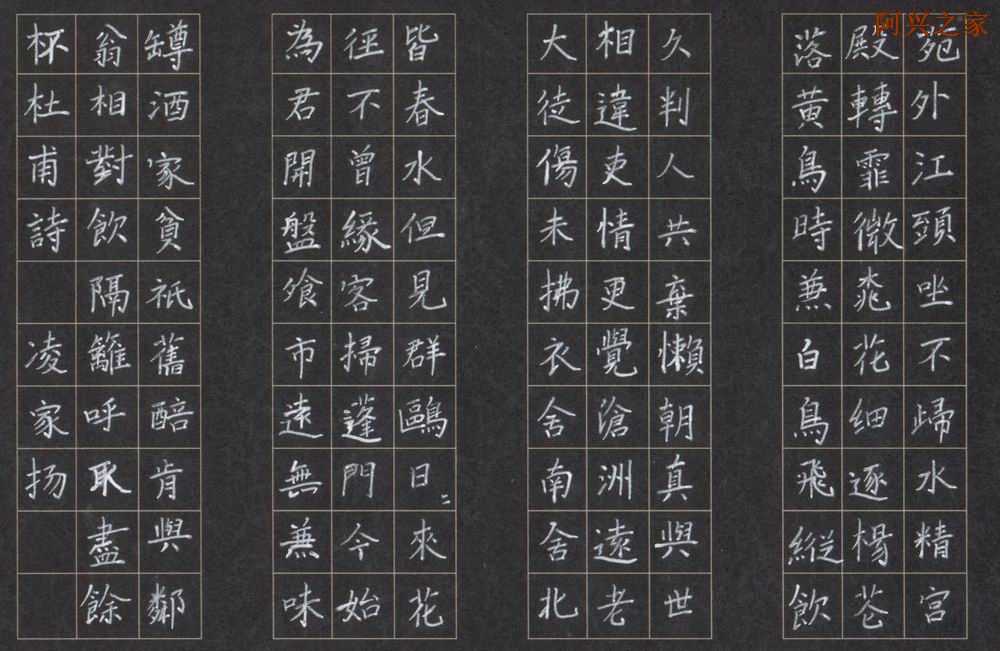 阿兴之家
苑外江頭坐不歸水精宮
殿轉霏微桃花細逐楊花
落黄鳥時兼白鳥飛縱飲
久判人共棄懶朝真與世
相違吏情更覺滄洲遠老
大徒傷未拂衣舍南舍北
皆春水但見群鷗日〻來花
徑不曾緣客掃蓬門今始
為君開盤飧市遠無兼味
罇酒家貧衹舊醅肯與鄰
翁相對飲隔籬呼取盡餘
杯杜甫詩 凌家扬